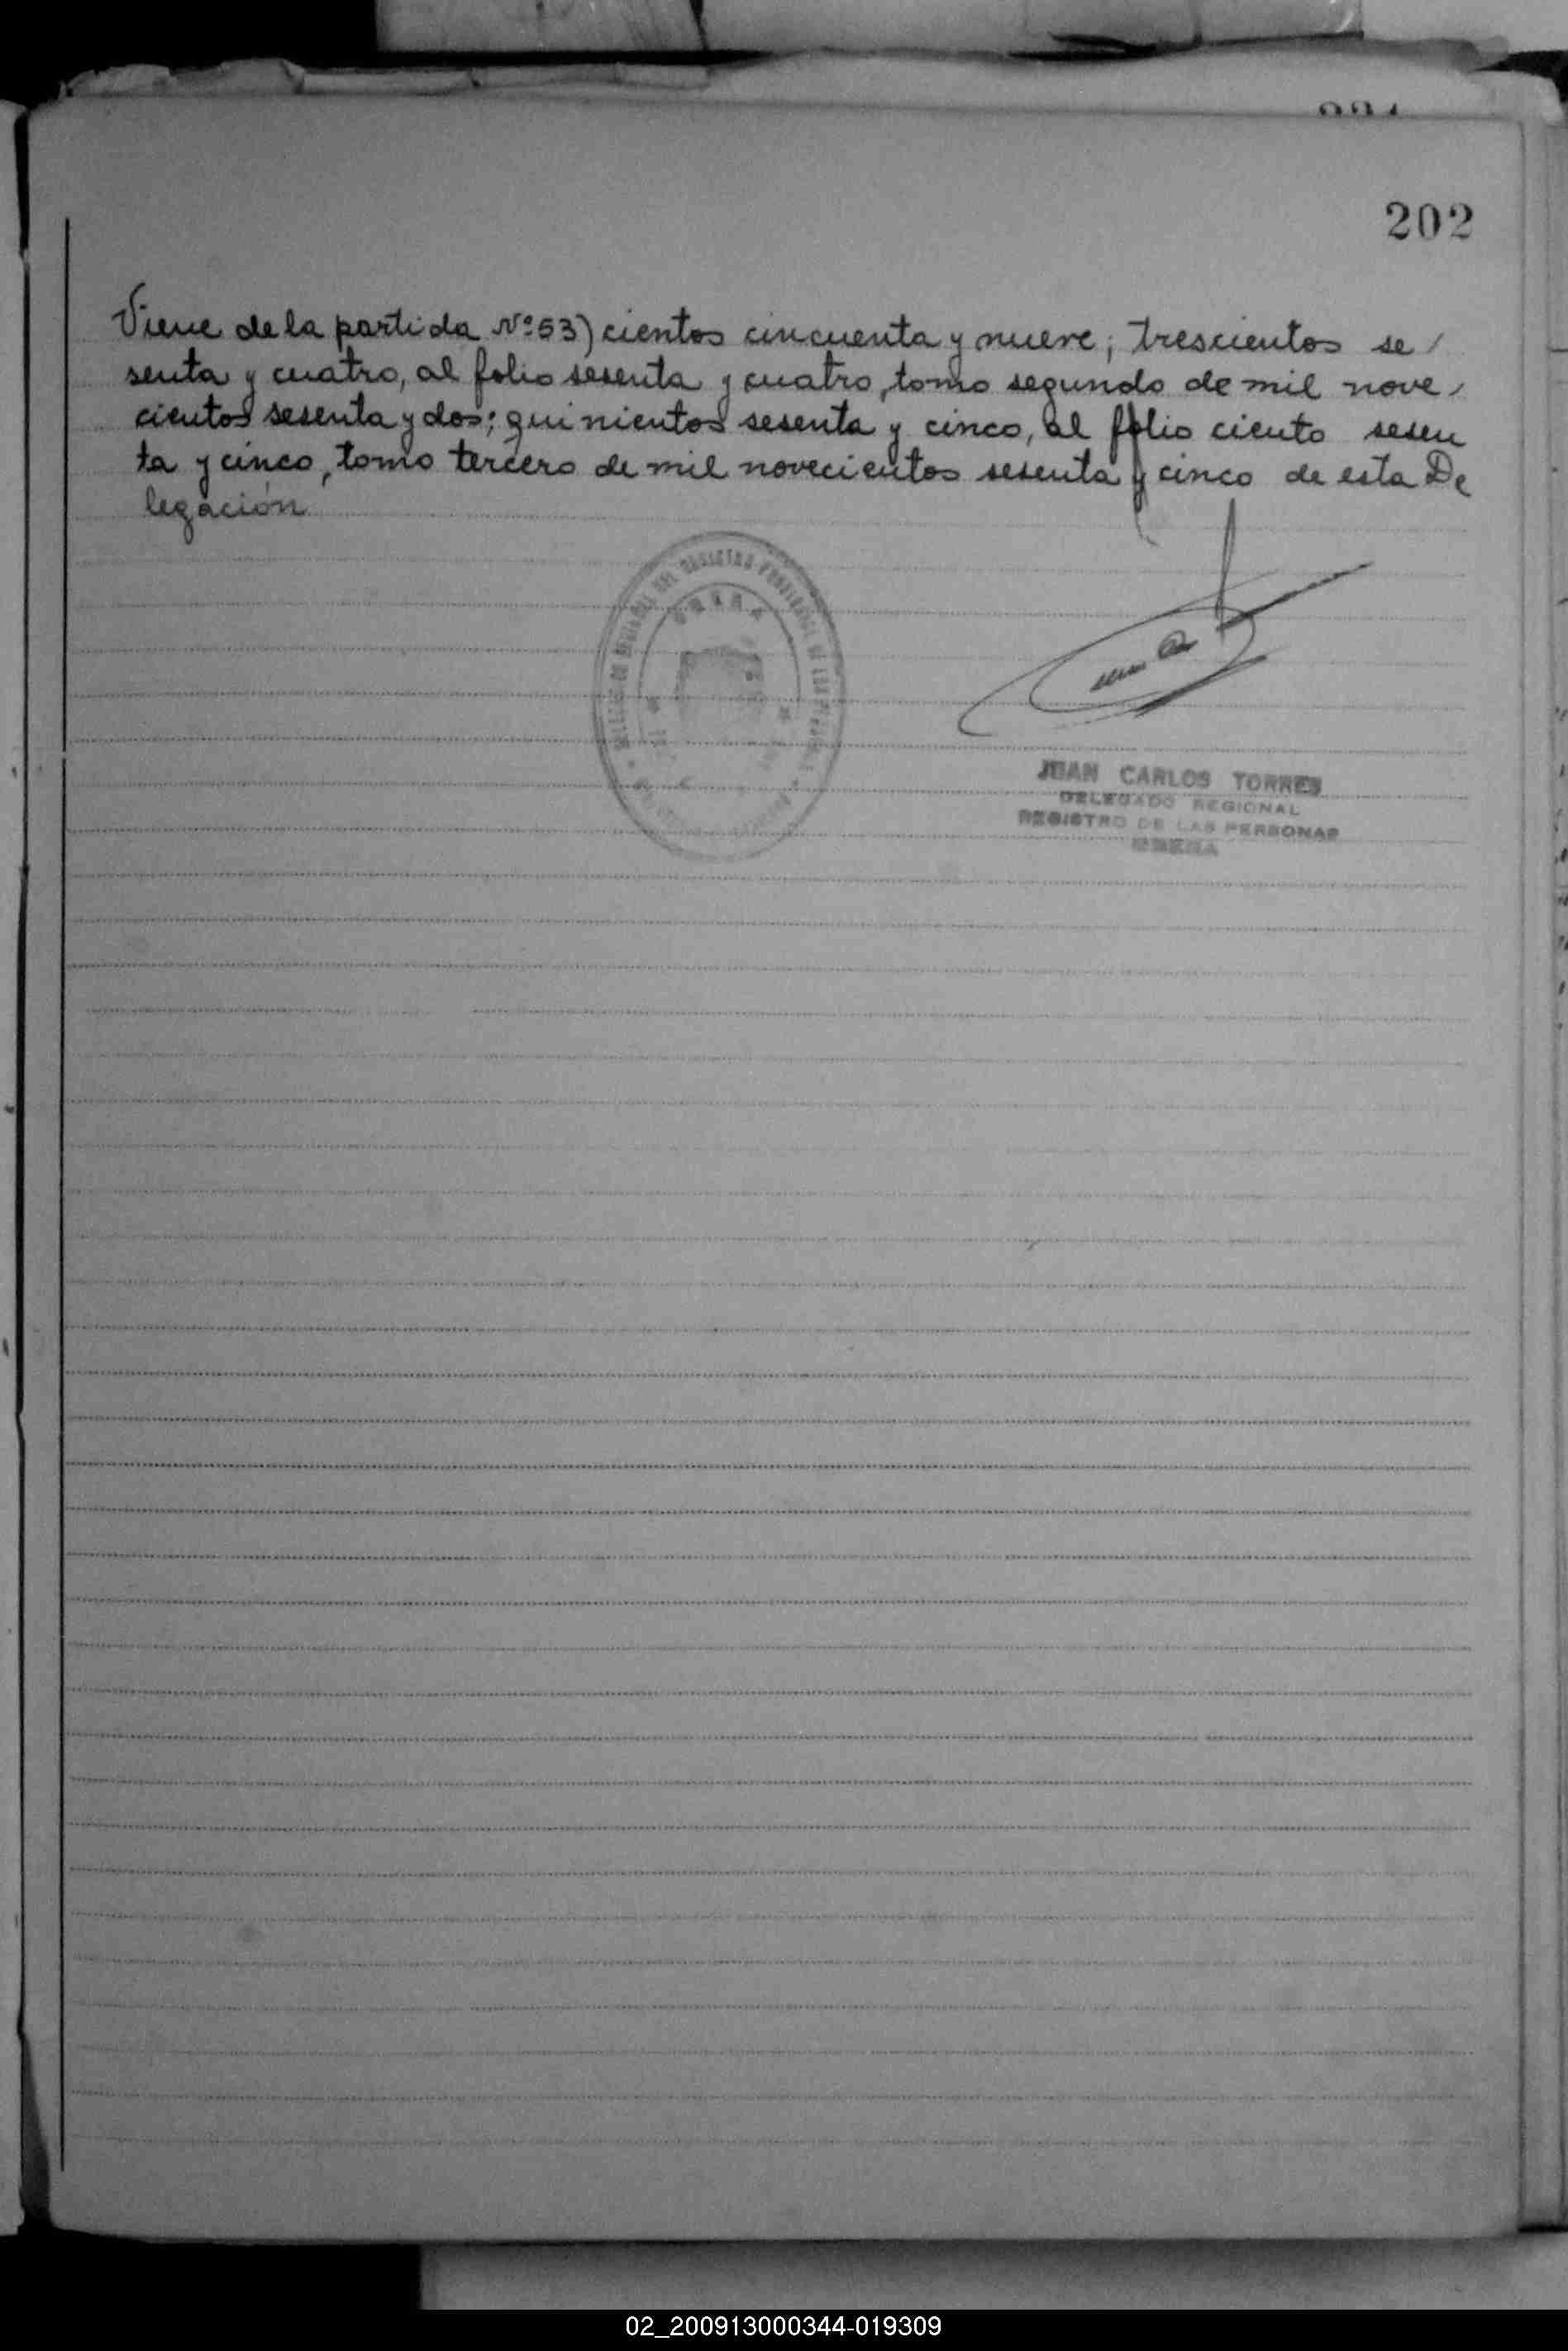 202
Viene de la partida Nº 53) cientos cincuenta y nueve; trescientos se
senta y cuatro, al folio sesenta y cuatro, tomo segundo de mil nove
cientos sesenta y dos; quinientos sesenta y cinco, al folio ciento sesen
ta y cinco, tomo tercero de mil novecientos sesenta y cinco de esta De
legación
JUAN CARLOS TORRES
DELEGADO REGIONAL
REGISTRO DE LAS PERSONAS
02_200913000344-019309